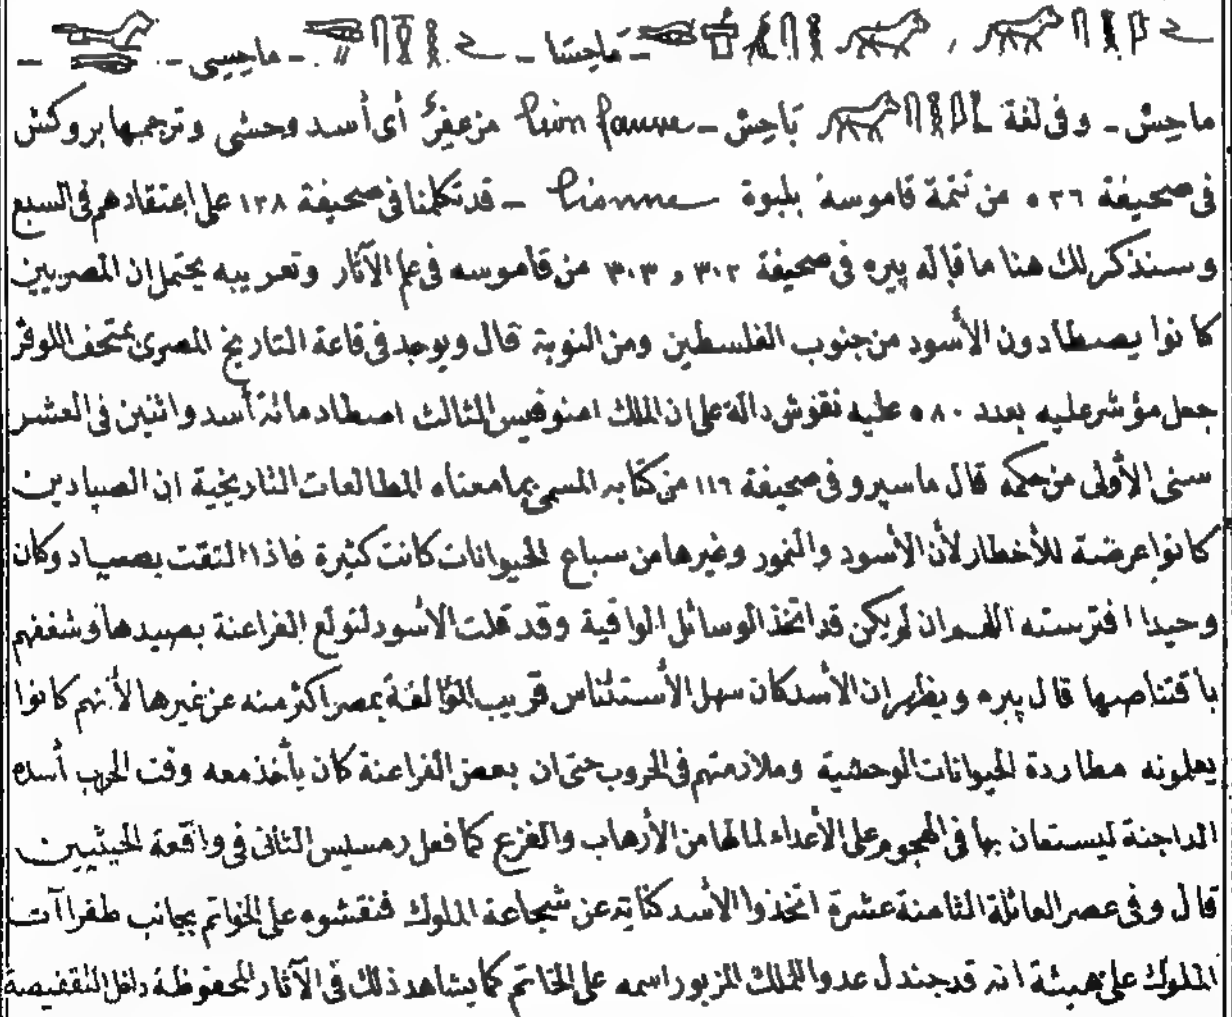 ـ ماحِسَا ـ ـ ماحِيسى ـ
ماحِسْ ـ وفى لغة بَاحِسْ ـ lion fauve مزعفِرٌ أى أسد وحشى وترجمها بروكش
فى صحيفة ٥٣٦ من تتمة قاموسه بلبوة Lionne ـ قد تكلمنا فى صحيفة ١٣٨ على اعتقادهم فى السبع
وسنذكر لك هنا ما قاله پيره فى صحيفة ٣٠٢ و ٣٠٣ من قاموسه فى علم الآثار وتعريبه يحتمل ان المصريين
كانوا يصطادون الأسود من جنوب الفلسطين ومن النوبة قال ويوجد فى قاعة التاريخ المصرى بمتحف اللوفر
جعل مؤشر عليه بعدد ٥٨٠ عليه نقوش دالة على ان الملك امنوفيس الثالث اصطاد مائة أسد واثنين فى العشر
سنى الأولى من حكمه قال ماسپرو فى صحيفة ١١٦ من كتابه المسمى بما معناه المطالعات التاريخية ان الصيادين
كانوا عرضة للأخطار لأن الأسود والنمور وغيرها من سباع الحيوانات كانت كثيرة فاذا التقت بصياد وكان
وحيدا افترسته اللهم ان لم يكن قد اتخذ الوسائل الواقية وقد قلت الأسود لتولع الفراعنة بصيدها وشغفهم
باقتناصها قال پيره ويظهر ان الأسد كان سهل الأستئناس قريب المؤالفة بمصر اكثر منه عن غيرها لأنهم كانوا
يعلمونه مطاردة الحيوانات الوحشية وملازمتهم فى الحروب حتى ان بعض الفراعنة كان يأخذ معه وقت الحرب أسده
الداجنة ليستعان بها فى الهجوم على الأعداء لما لها من الأرهاب والفزع كما فعل رمسيس الثانى فى واقعة الحيثيين
قال وفى عصر العائلة الثامنة عشرة اتخذوا الأسد كناية عن شجاعة الملوك فنقشوه على الخواتم بجانب طغراآت
الملوك على هيئة انه قد جندل عدوا للملك المزبور اسمه على الخاتم كما يشاهد ذلك فى الآثار المحفوظة داخل التقفيصة